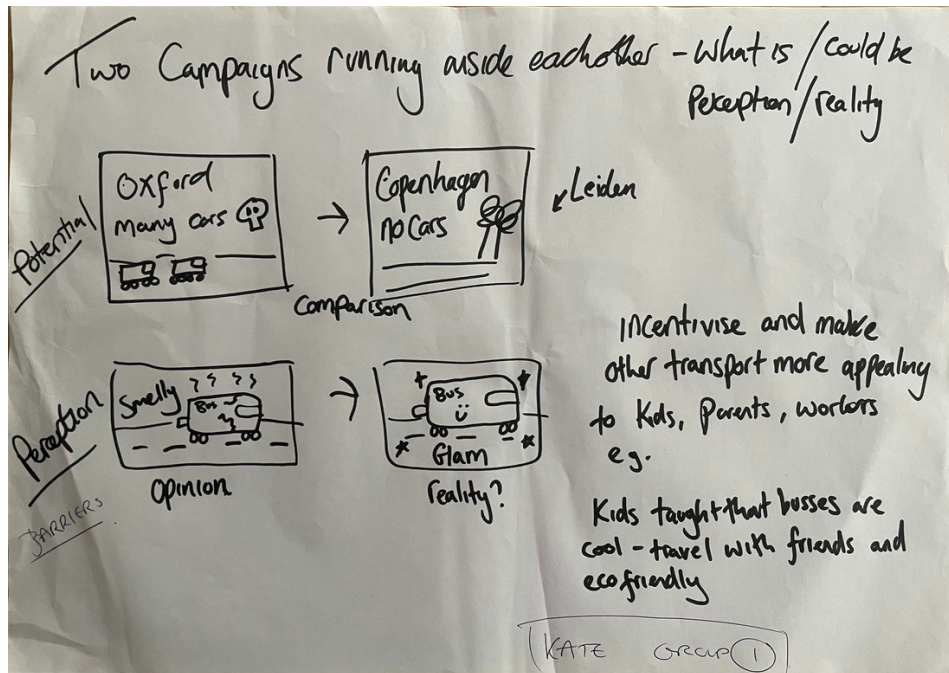 Two Campaigns running inside eachother - What is / could be
Perception / reality
Potential
Oxford
many cars
Copenhagen
no Cars
Leiden
Comparison
Perception
Smelly
Bus
Opinion
Bus
Glam
reality?
BARRIERS
Incentivise and make
other transport more appealing
to Kids, Parents, workers
eg.
Kids taught that busses are
cool - travel with friends and
ecofriendly
KATE GROUP 1